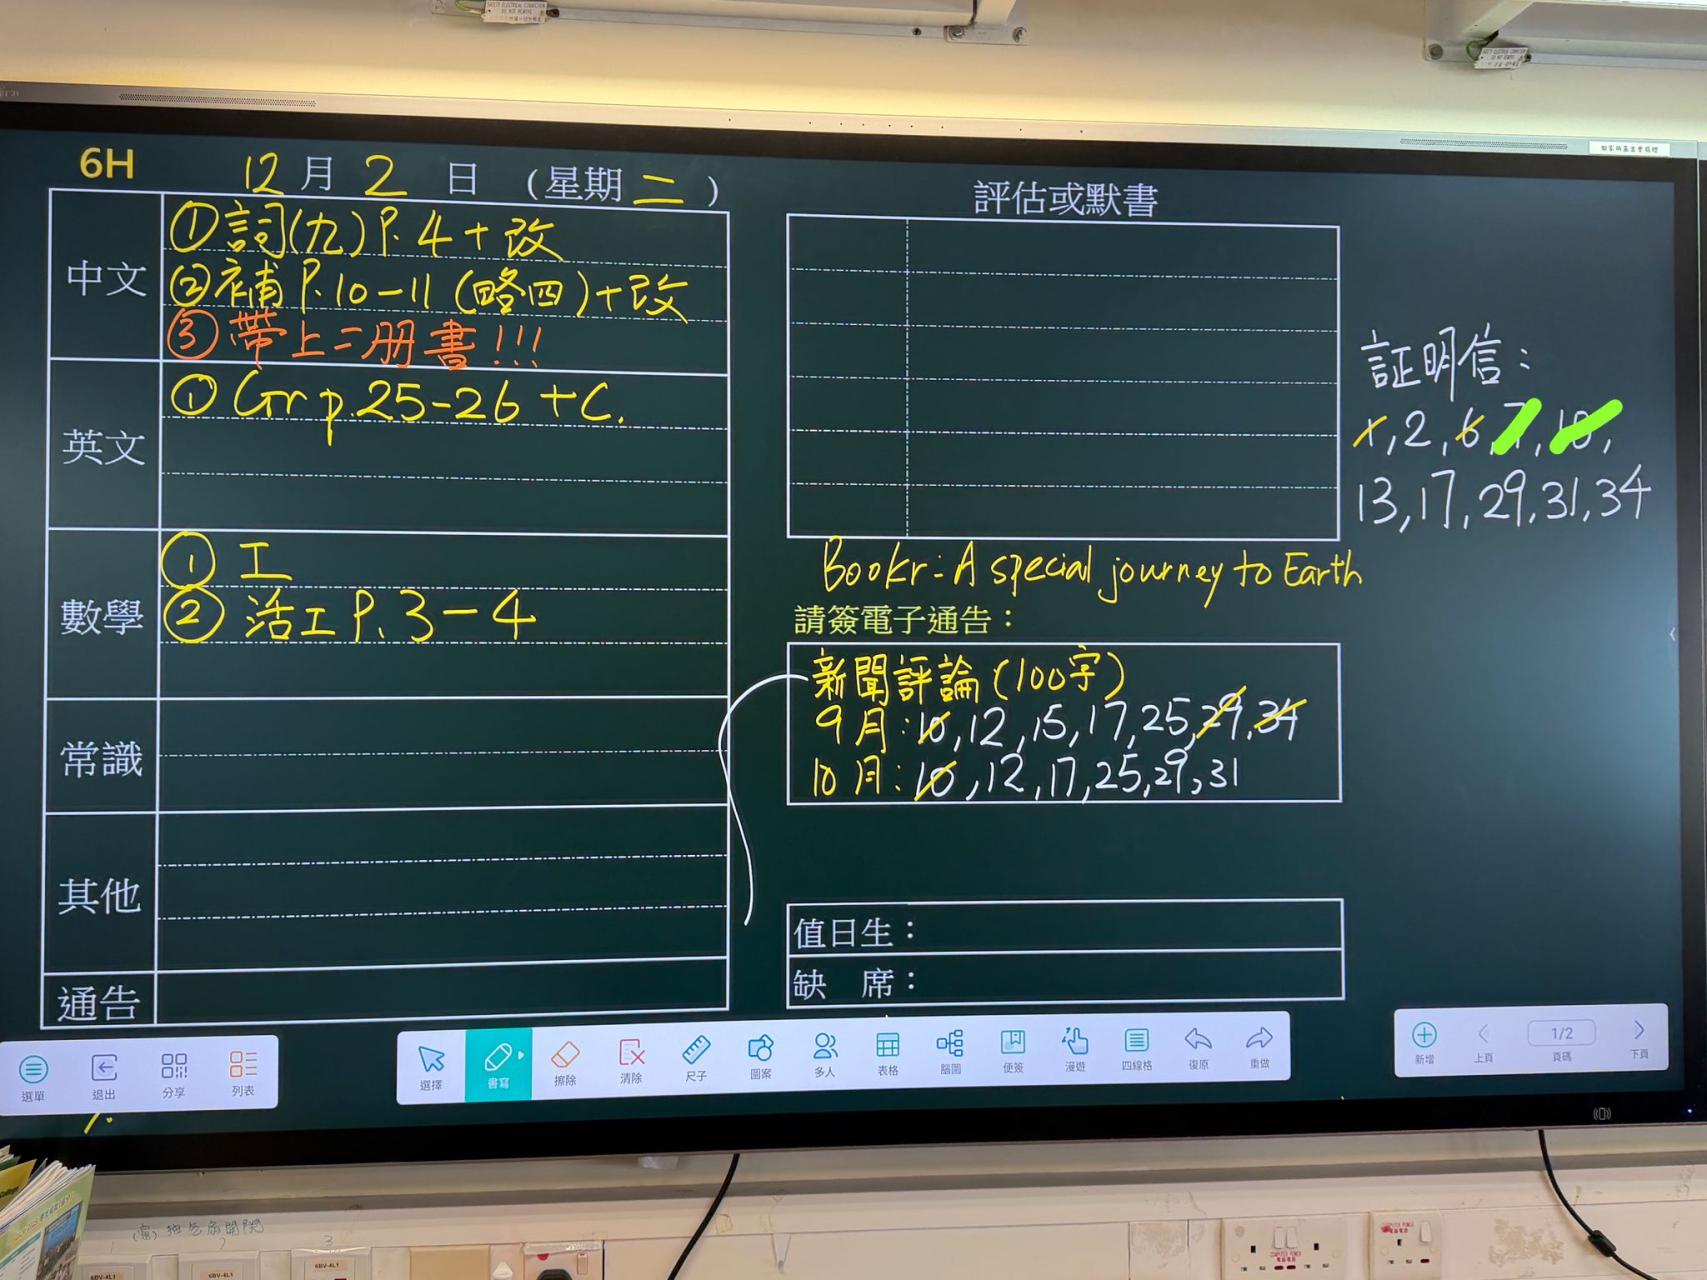 6H 12月2日 (星期二)
中文
①詞(九)P.4+改
②補P.10-11(略四)+改
③帶上二册書!!!
英文
①Gr p.25-26 +C.
數學
① 工
② 活工P.3-4
常識
其他
通告
評估或默書
Bookr: A special journey to Earth
請簽電子通告：
新聞評論(100字)
9月:10,12,15,17,25,29,34
10月:10,12,17,25,29,31
值日生：
缺 席：
証明信：
1,2,6,7,10,
13,17,29,31,34
選單 退出 分享 列表
選擇 書寫 擦除 清除 尺子 圖案 多人 表格 腦圖 便簽 漫遊 四線格 復原 重做
新增 上頁 1/2 頁碼 下頁
6BV-4L1 6BV-4L1 6BV-4L1